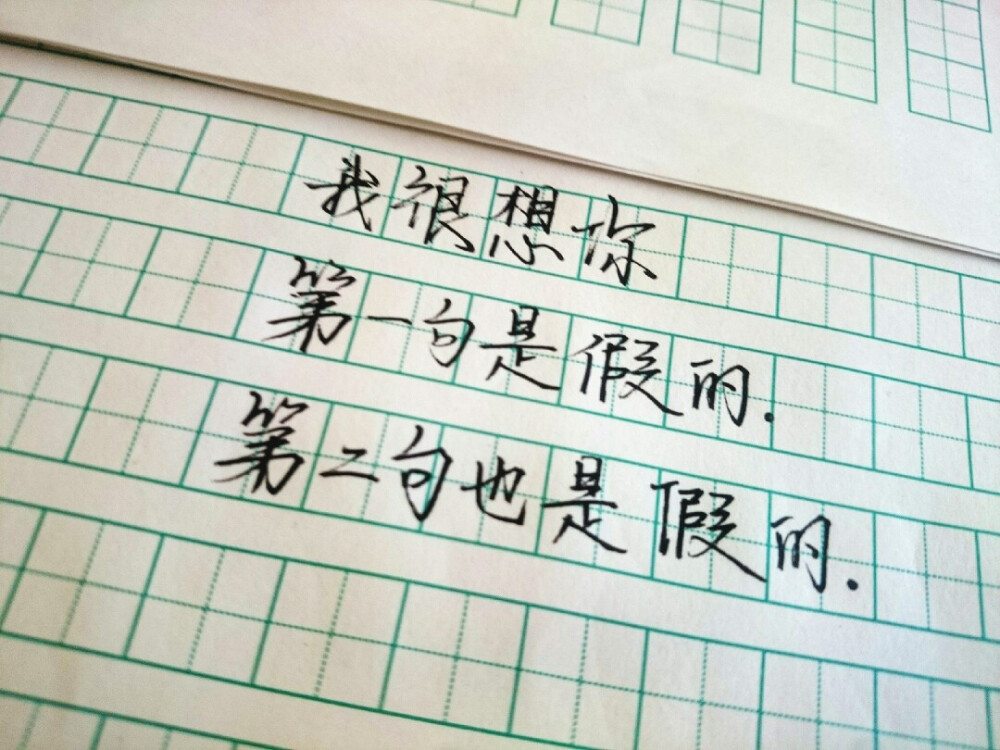 我很想你
第一句是假的.
第二句也是假的.